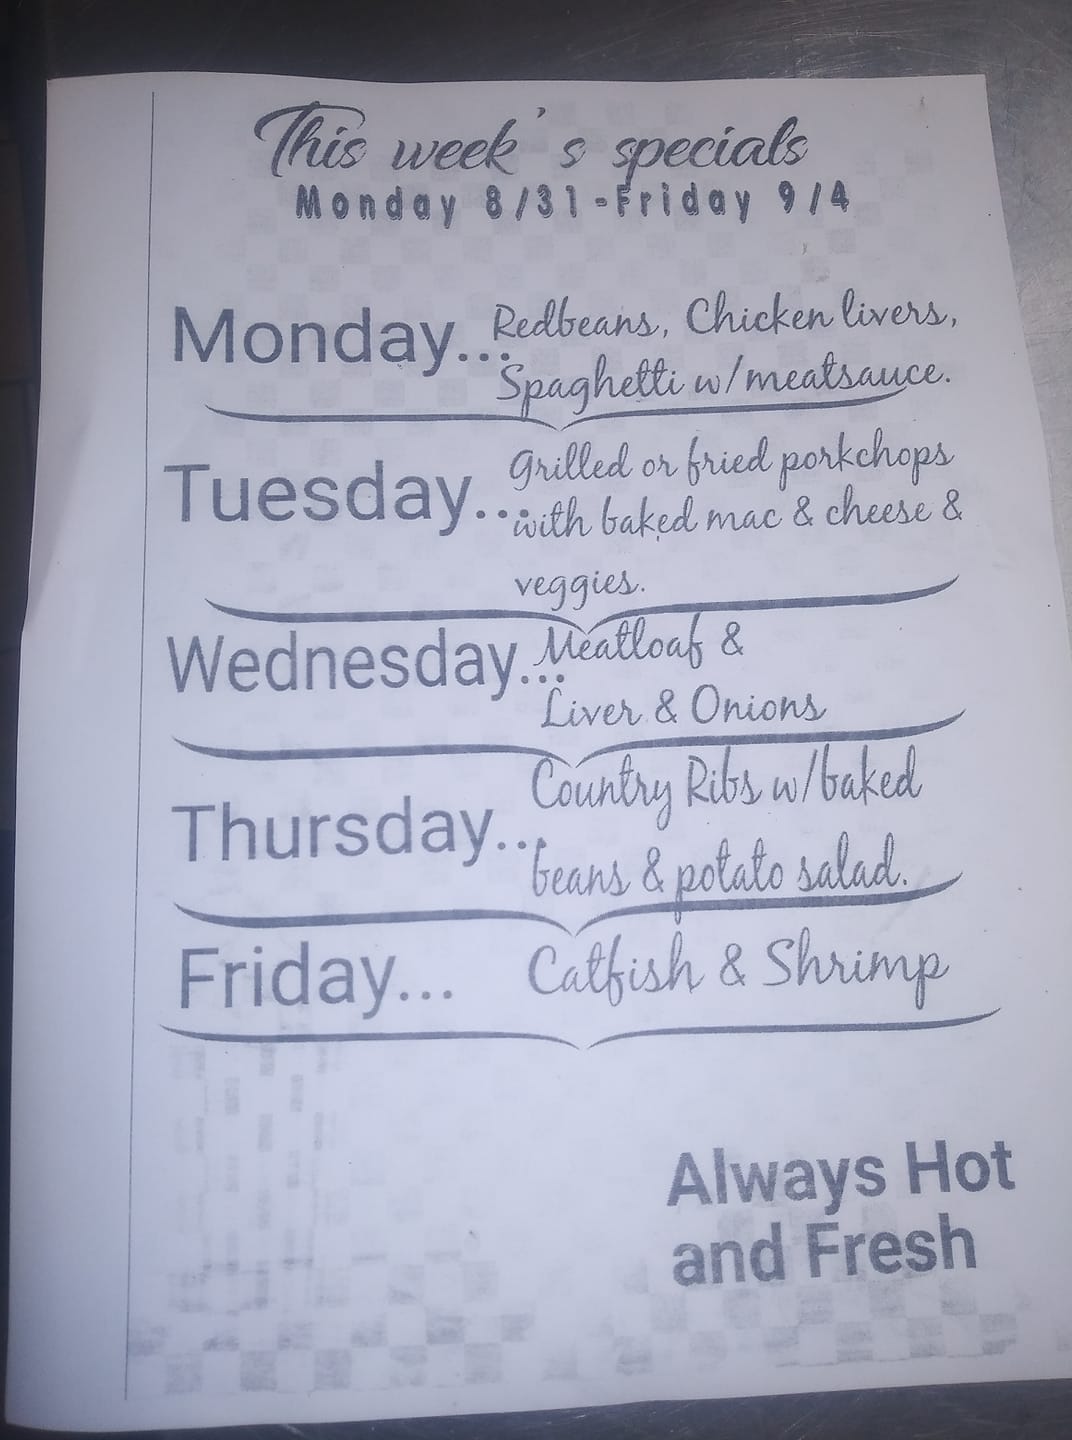 This week's specials
Monday 8/31-Friday 9/4
Monday... Redbeans, Chicken livers,
Spaghetti w/meatsauce.
Tuesday... Grilled or fried porkchops
with baked mac & cheese &
veggies.
Wednesday... Meatloaf &
Liver & Onions
Thursday... Country Ribs w/baked
beans & potato salad.
Friday... Catfish & Shrimp
Always Hot
and Fresh